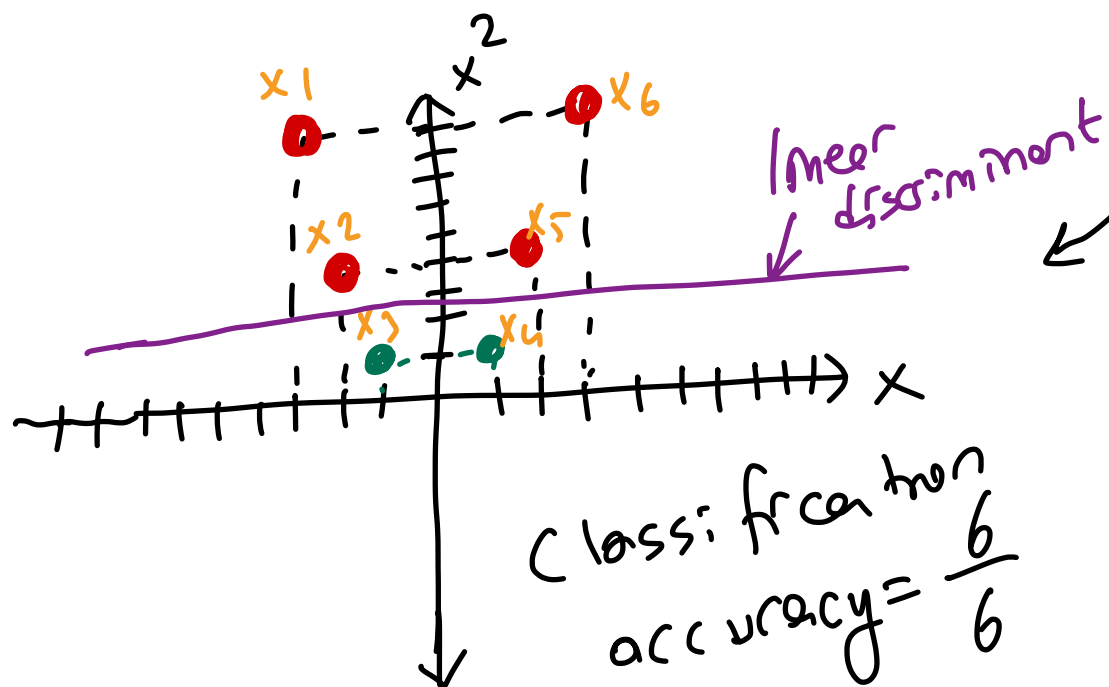 x²
x1
x6
linear
discriminant
x2
x5
x3
x4
x
Classification
accuracy = 6/6